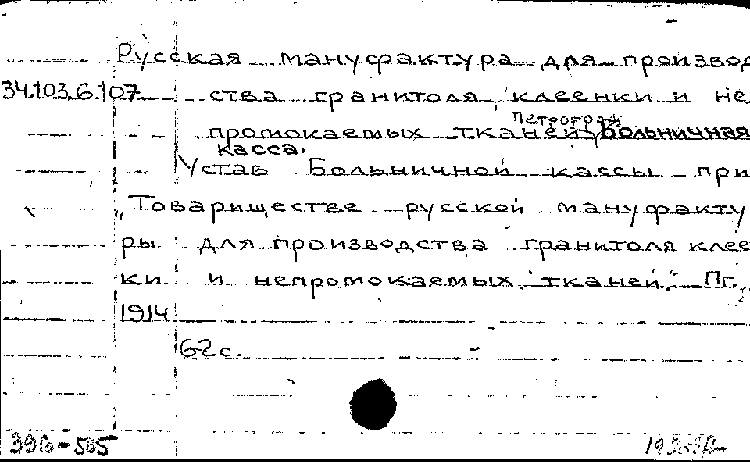 Русская мануфактура для производ
34.103.6.107 ства гранитоля, клеенки и не
Петроград
промокаемых тканей, Больничная
касса.
Устав Больничной кассы при
„Товариществе русской мануфакту
ры для производства гранитоля клее
ки и непромокаемых тканей." Пг.,
1914
62 с.